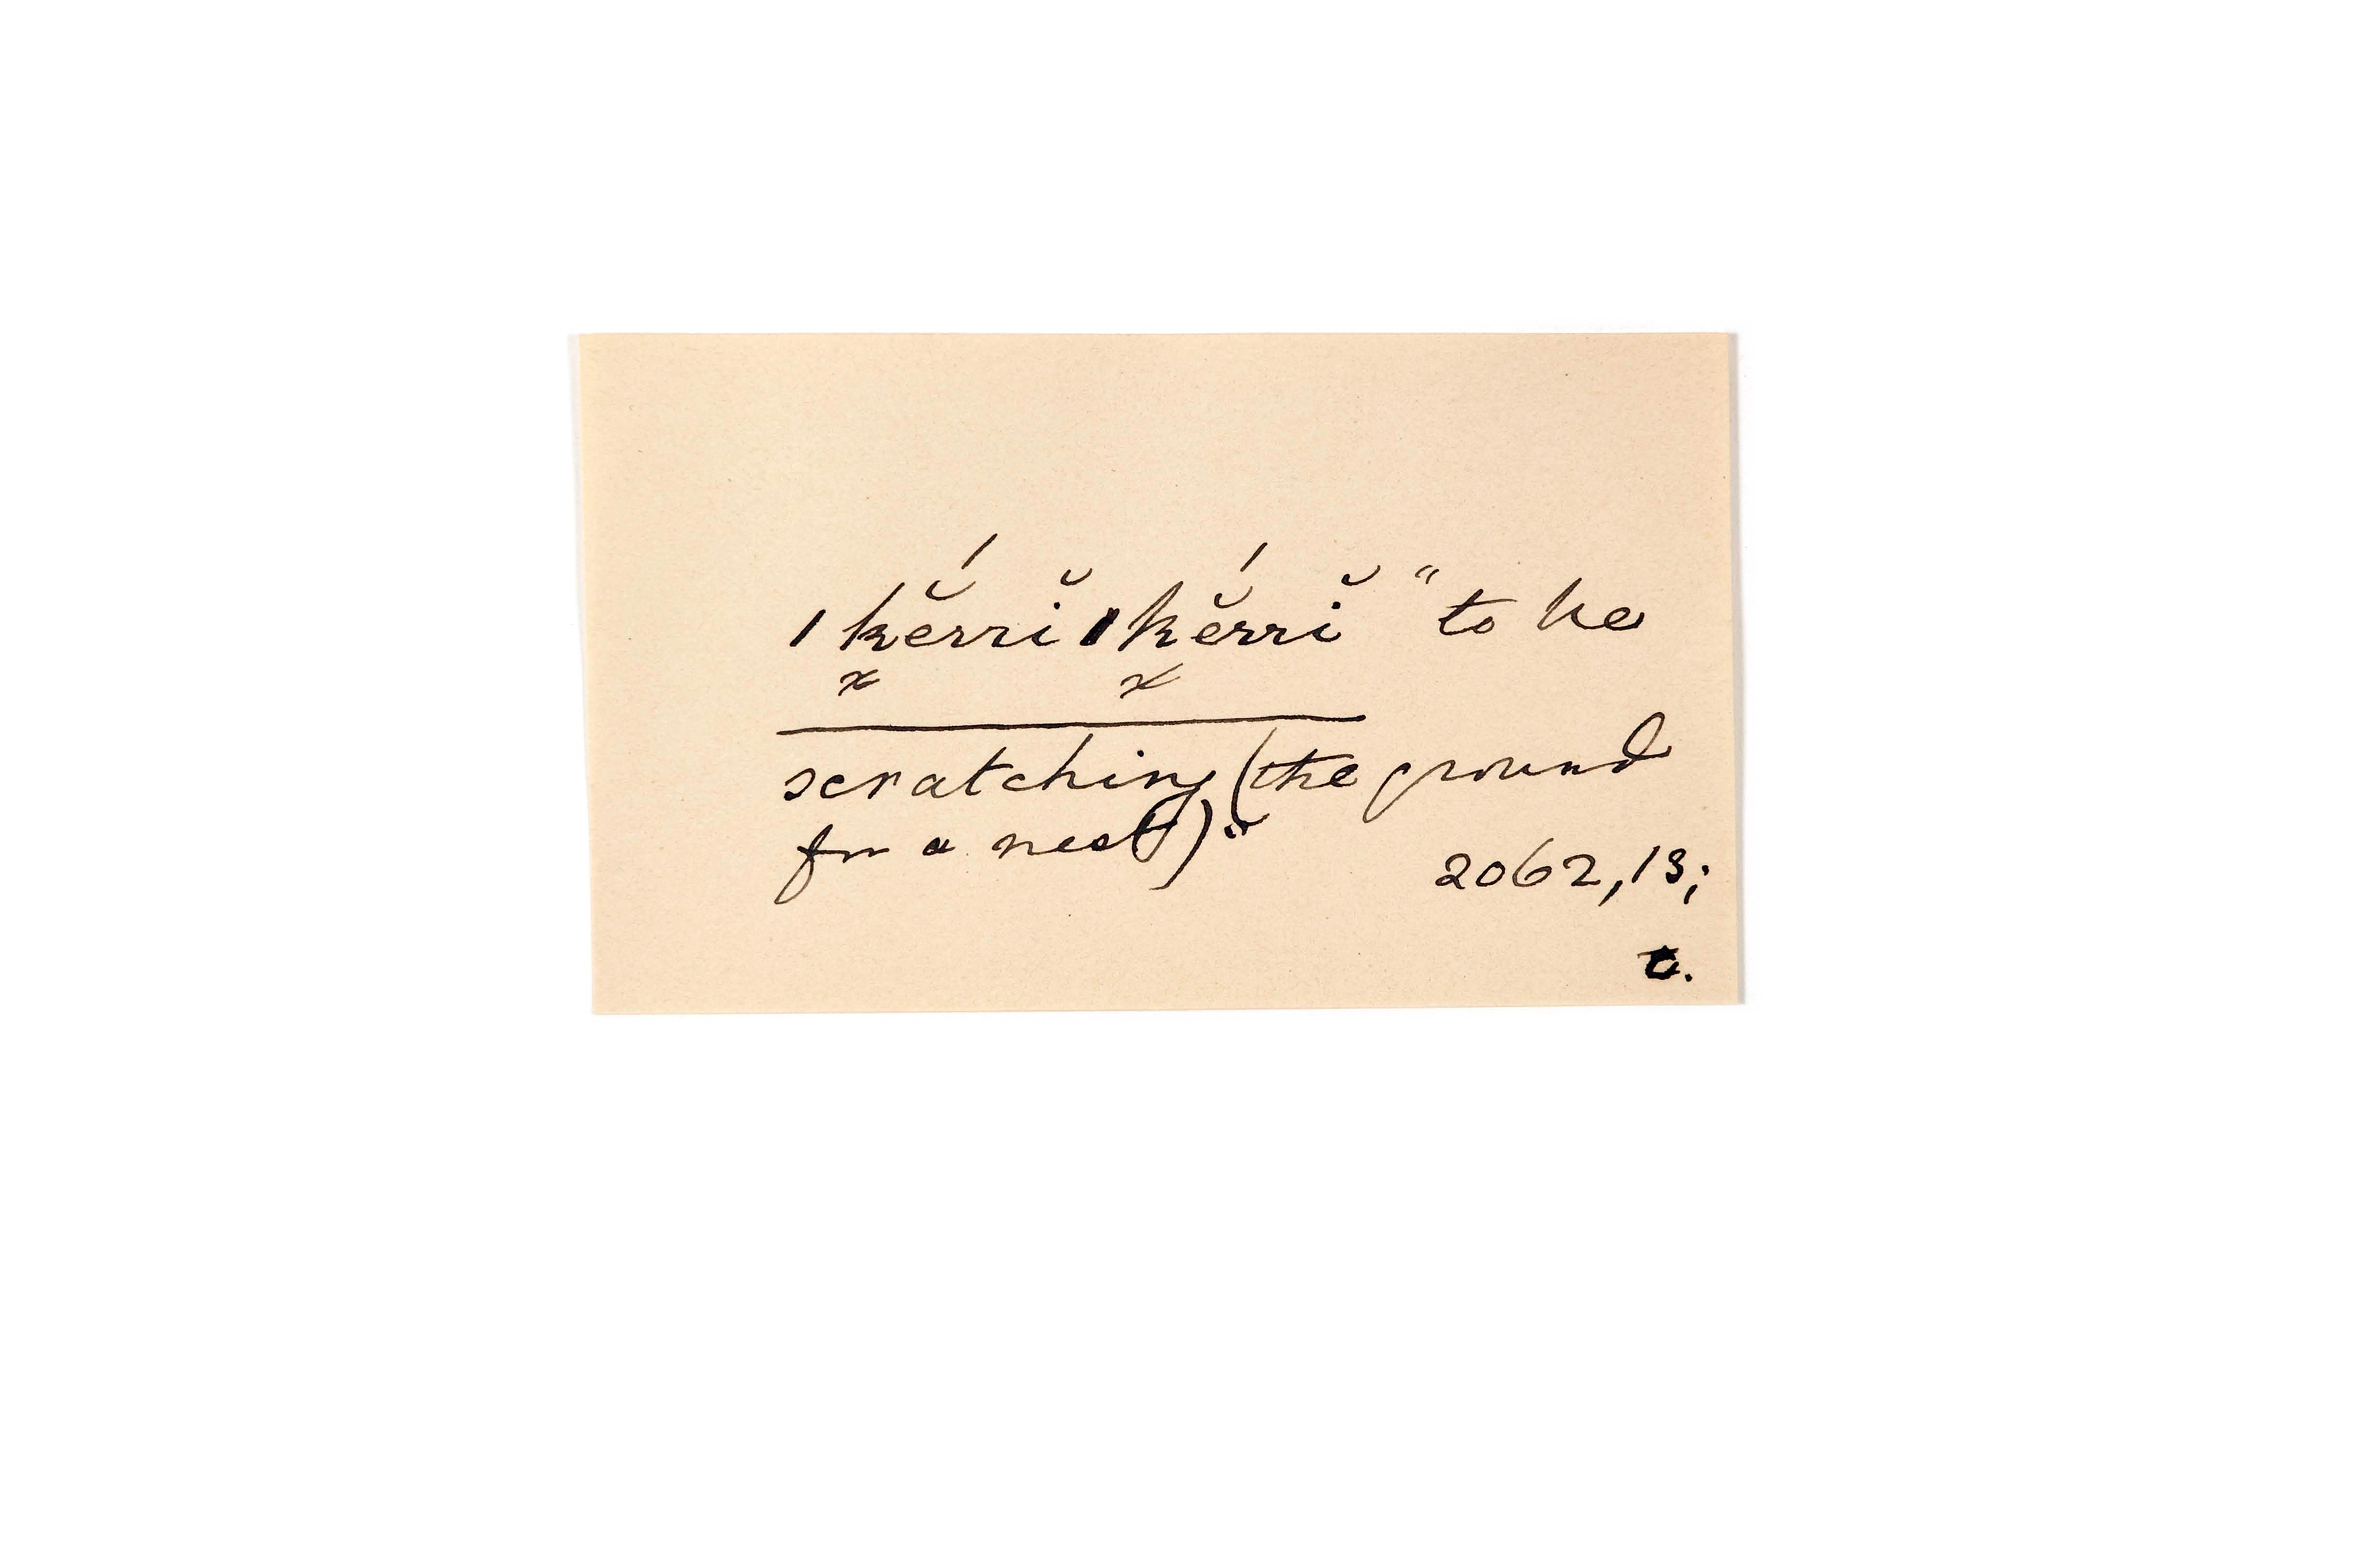 |k̬ĕ́rrĭ|k̬ĕ́rrĭ "to be
scratching (the ground
for a nest)."
2062,13;
t.